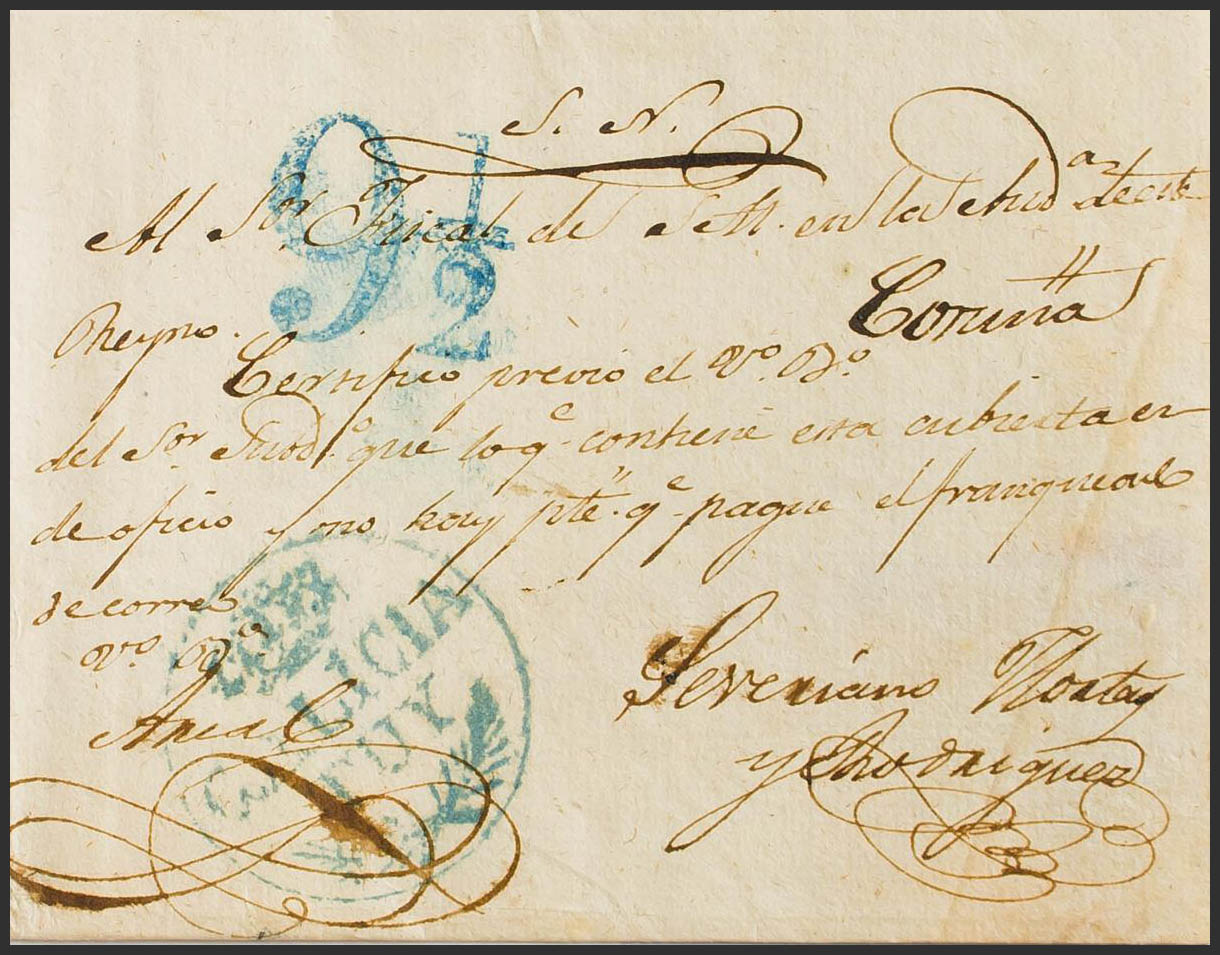 S. N.
9 1/2
Al Sor. Fiscal de S. M. en la Auda. de este
Reyno.
Coruña
Certifico previo el Vo. Bo.
del Sor. que lo qe. contiene esta cubierta es
de oficio y no hay pte. qe. pague el franqueo
de correo
Vo. Bo.
GALICIA
TUY
Severiano
y Rodriguez